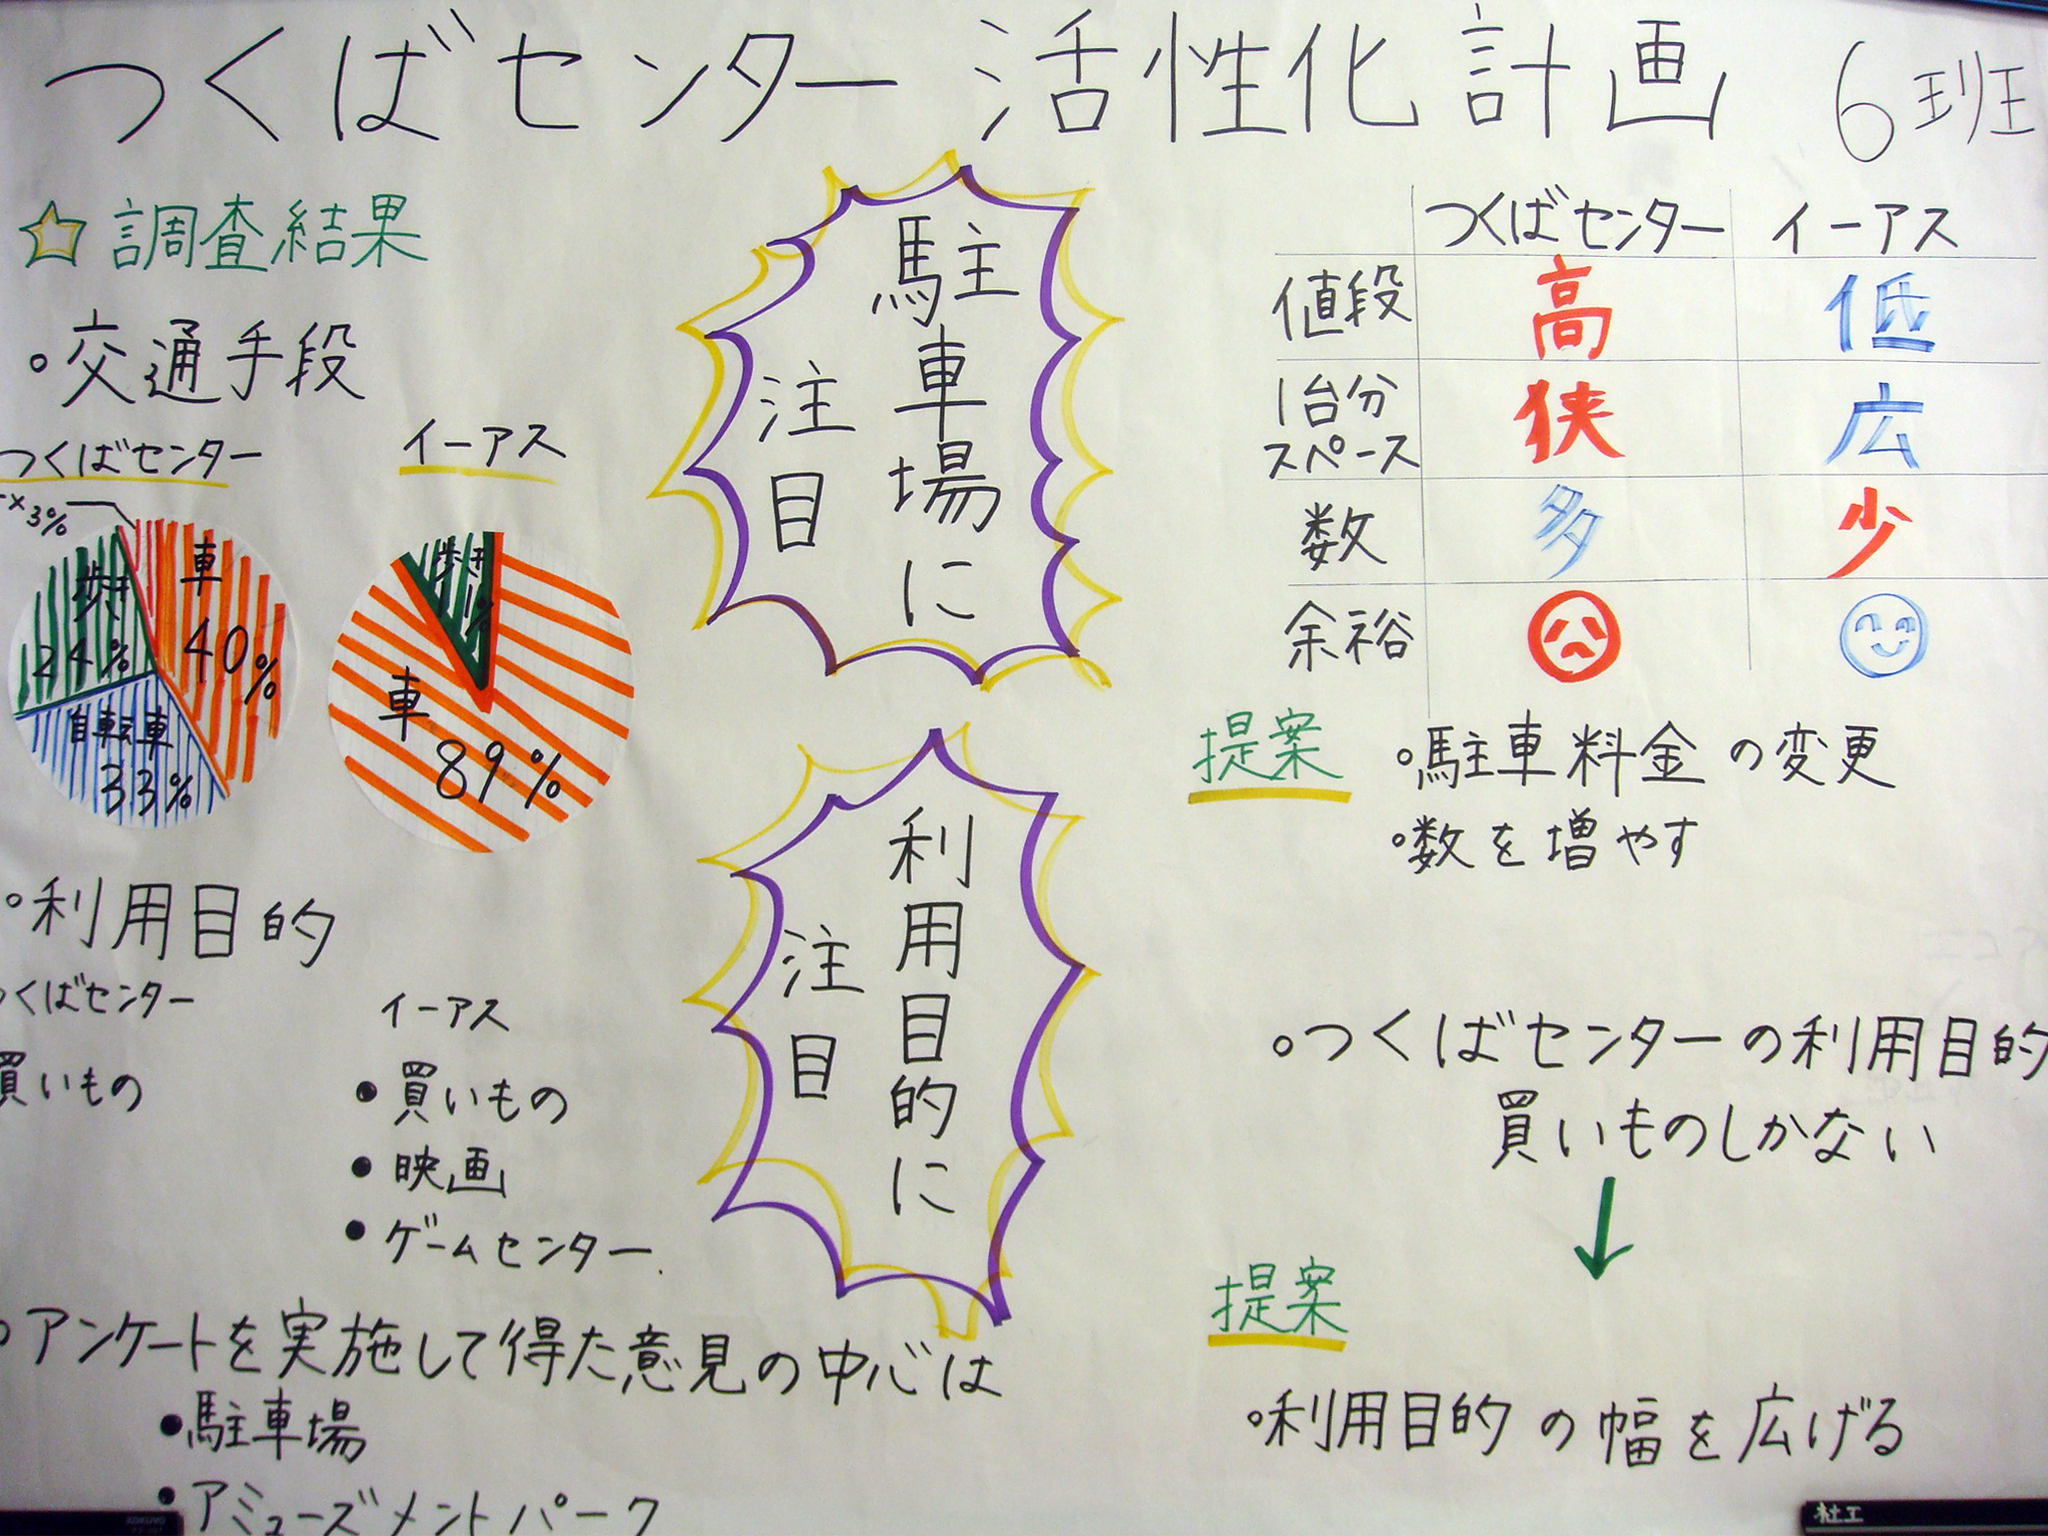 つくばセンター 活性化計画 6班
☆調査結果
・交通手段
つくばセンター
イーアス
3%
車
40%
歩き
24%
自転車
33%
歩き
11%
車
89%
・利用目的
くばセンター
買いもの
イーアス
・買いもの
・映画
・ゲームセンター
アンケートを実施して得た意見の中心は
・駐車場
・アミューズメントパーク
駐車場に
注目
利用目的に
注目
つくばセンター イーアス
値段 高 低
1台分スペース 狭 広
数 多 少
余裕
提案
・駐車料金の変更
・数を増やす
・つくばセンターの利用目的
買いものしかない
提案
・利用目的の幅を広げる
社工